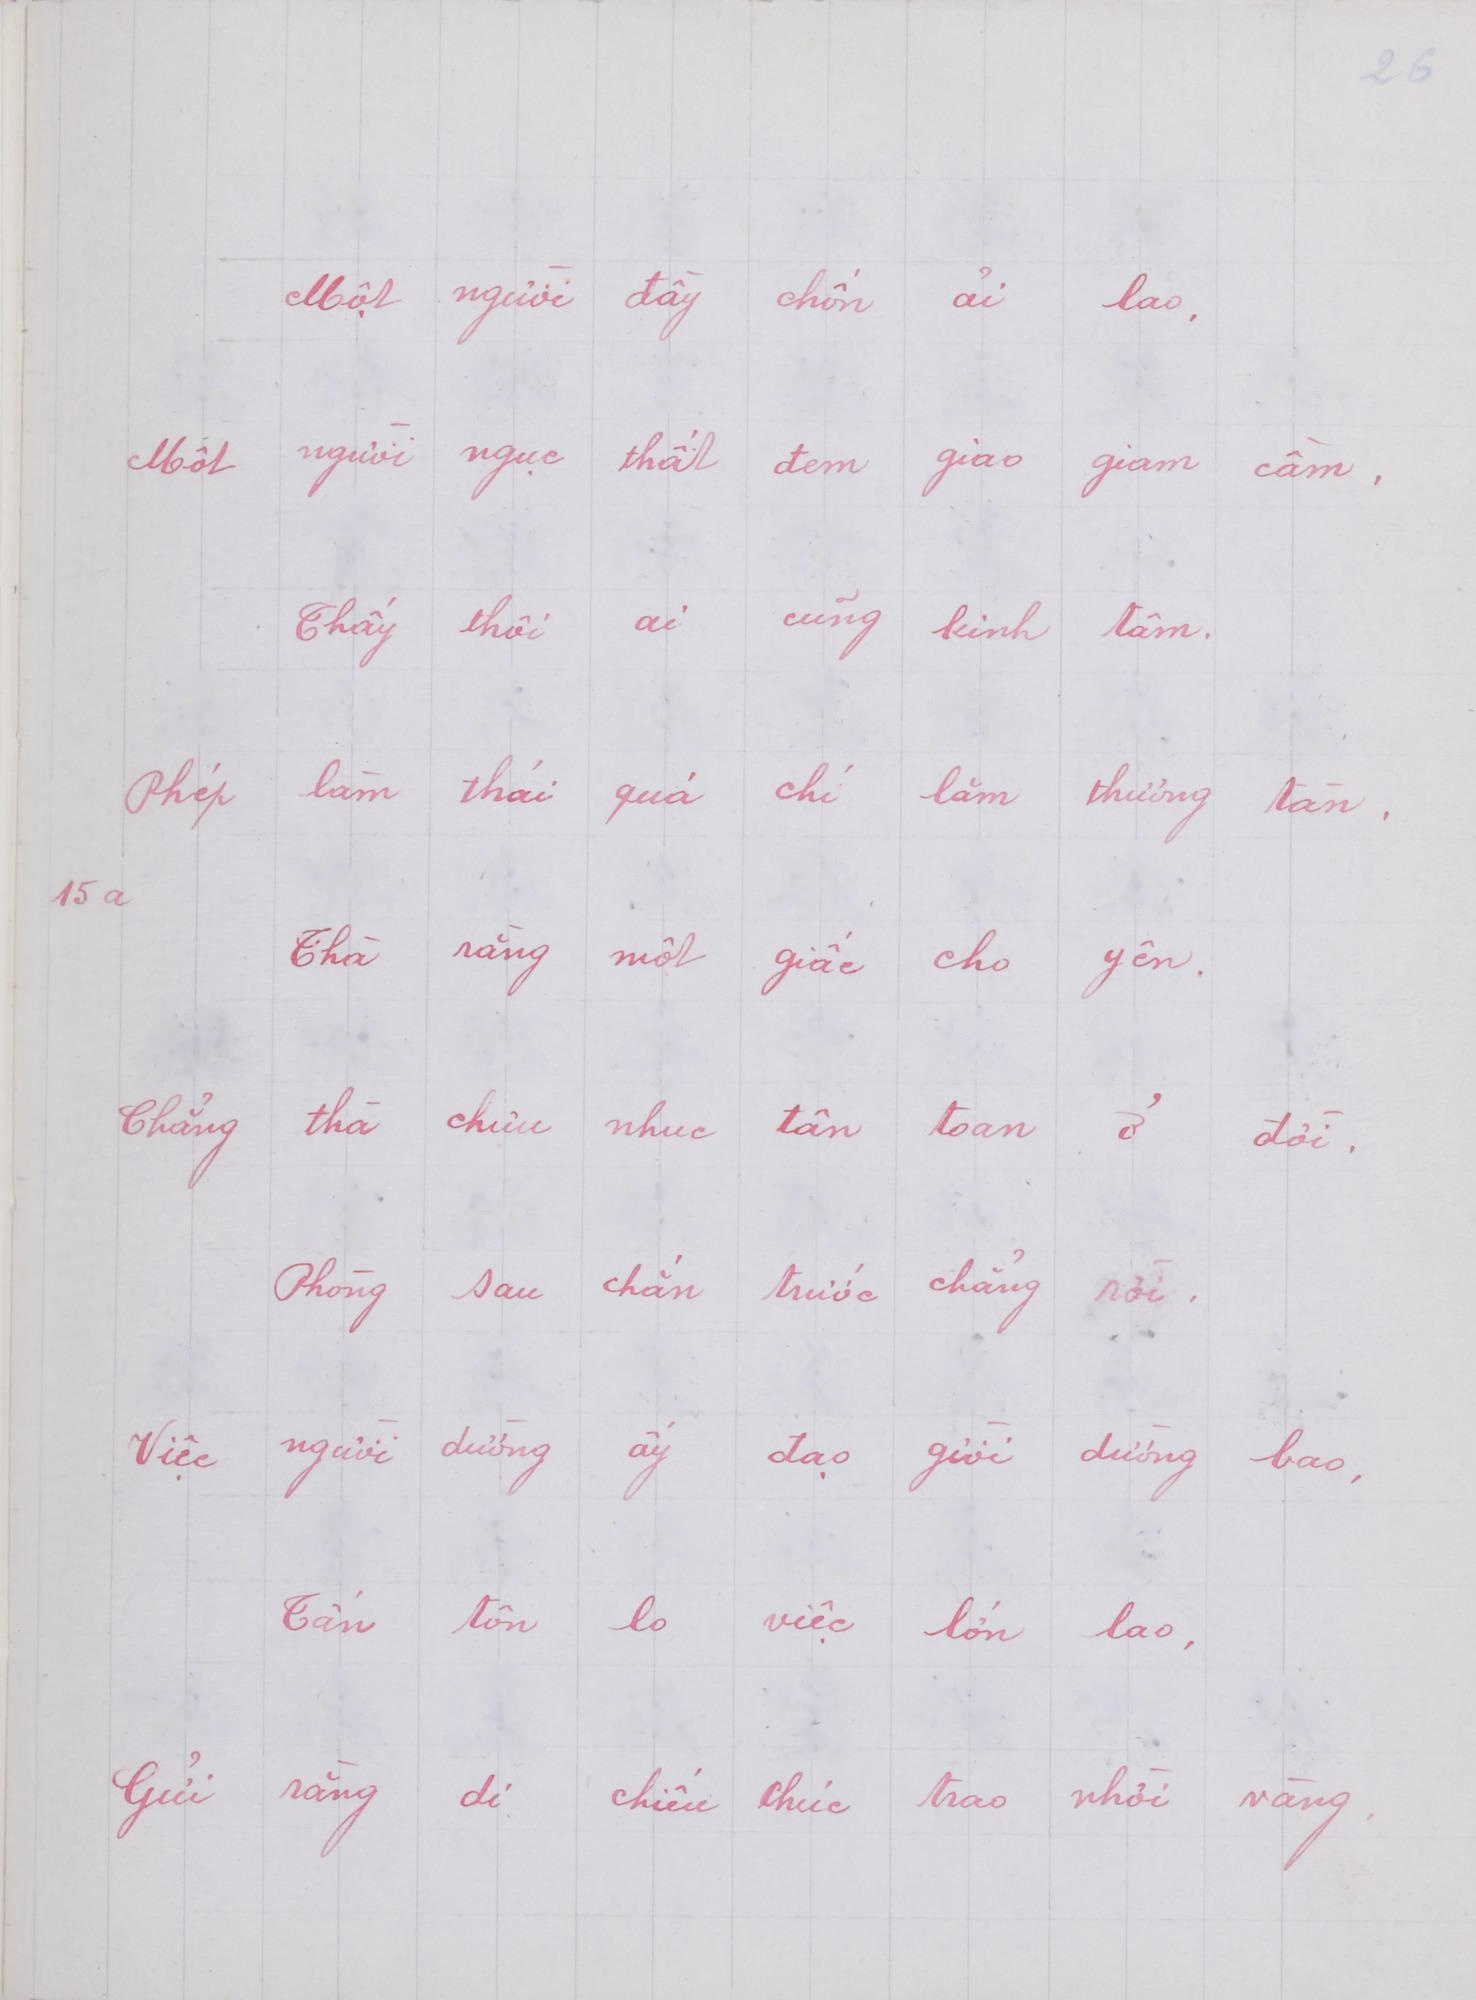 26
Một người đầy chốn ải lao,
Một người ngục thất đem giao giam cầm,
Thấy thôi ai cũng kinh tâm.
Phép làm thái quá chí lăm thường tàn,
15 a
Thà rằng một giấc cho yên.
Chẳng thà chiụ nhục tân toan ở đời.
Phòng sau chắn trước chẳng rồi.
Việc người dường ấy đạo giời dường bao,
Tán tôn lo việc lớn lao,
Gửi rằng di chiếu chúc trao nhời vàng.